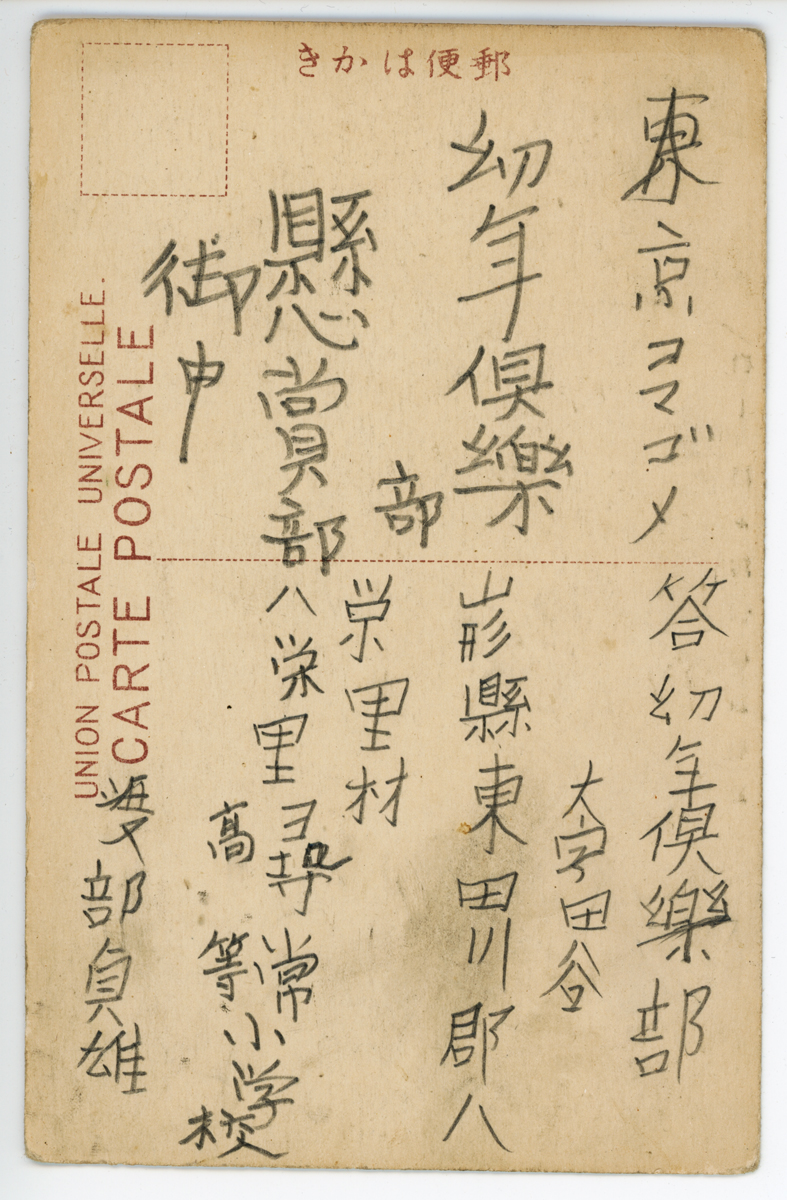 郵便はかき
東京コマゴメ
幼年倶樂部
懸賞部
御中
答幼年倶樂部
大字田谷
山形縣東田川郡八
栄里材
八栄里尋常
高等小学校
渡部貞雄
CARTE POSTALE
UNION POSTALE UNIVERSELLE.